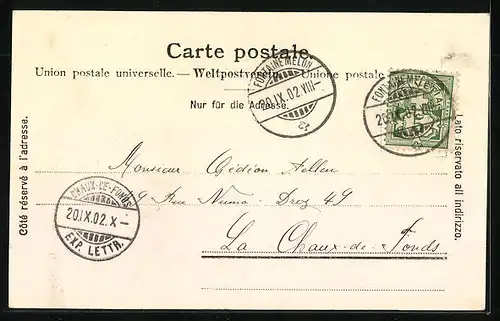 Carte postale.
Union postale universelle. — Weltpostverein. — Unione postale
Nur für die Adresse.
FONTAINEMELON
20.IX.02.VIII—
FONTAINEMELON
20.IX.02.VIII
Côté réservé à l'adresse.
Lato riservato all'indirizzo.
Monsieur Gédéon Aellen
9 Rue Numa-Droz 49
La Chaux-de-Fonds
CHAUX-DE-FONDS
20.IX.02.X—
EXP. LETTR.